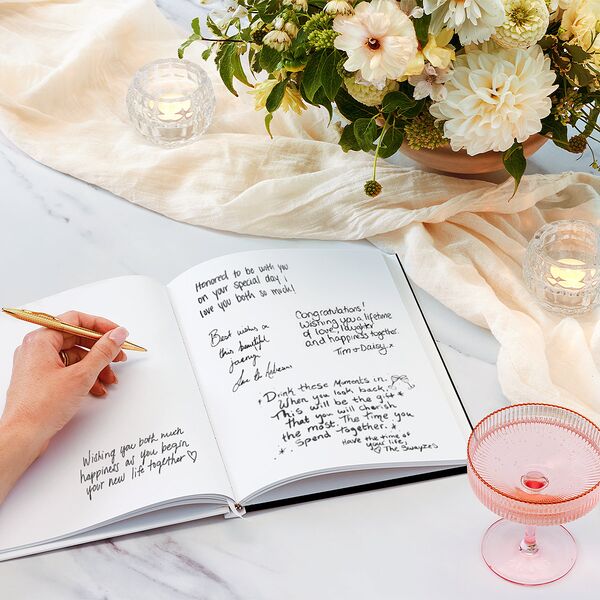 Wishing you both much
happiness as you begin
your new life together ♡
Honored to be with you
on your special day i
love you both so much!
Best wishes on
this beautiful
Love
Congratulations!
Wishing you a lifetime
of love, laughter
and happiness together.
Tim + Daisy x
Drink these moments in.
When you look back,
This will be the gift
that you will cherish
the most. The time you
Spend together.
Have the time of
your life,
♡ The Swayzes